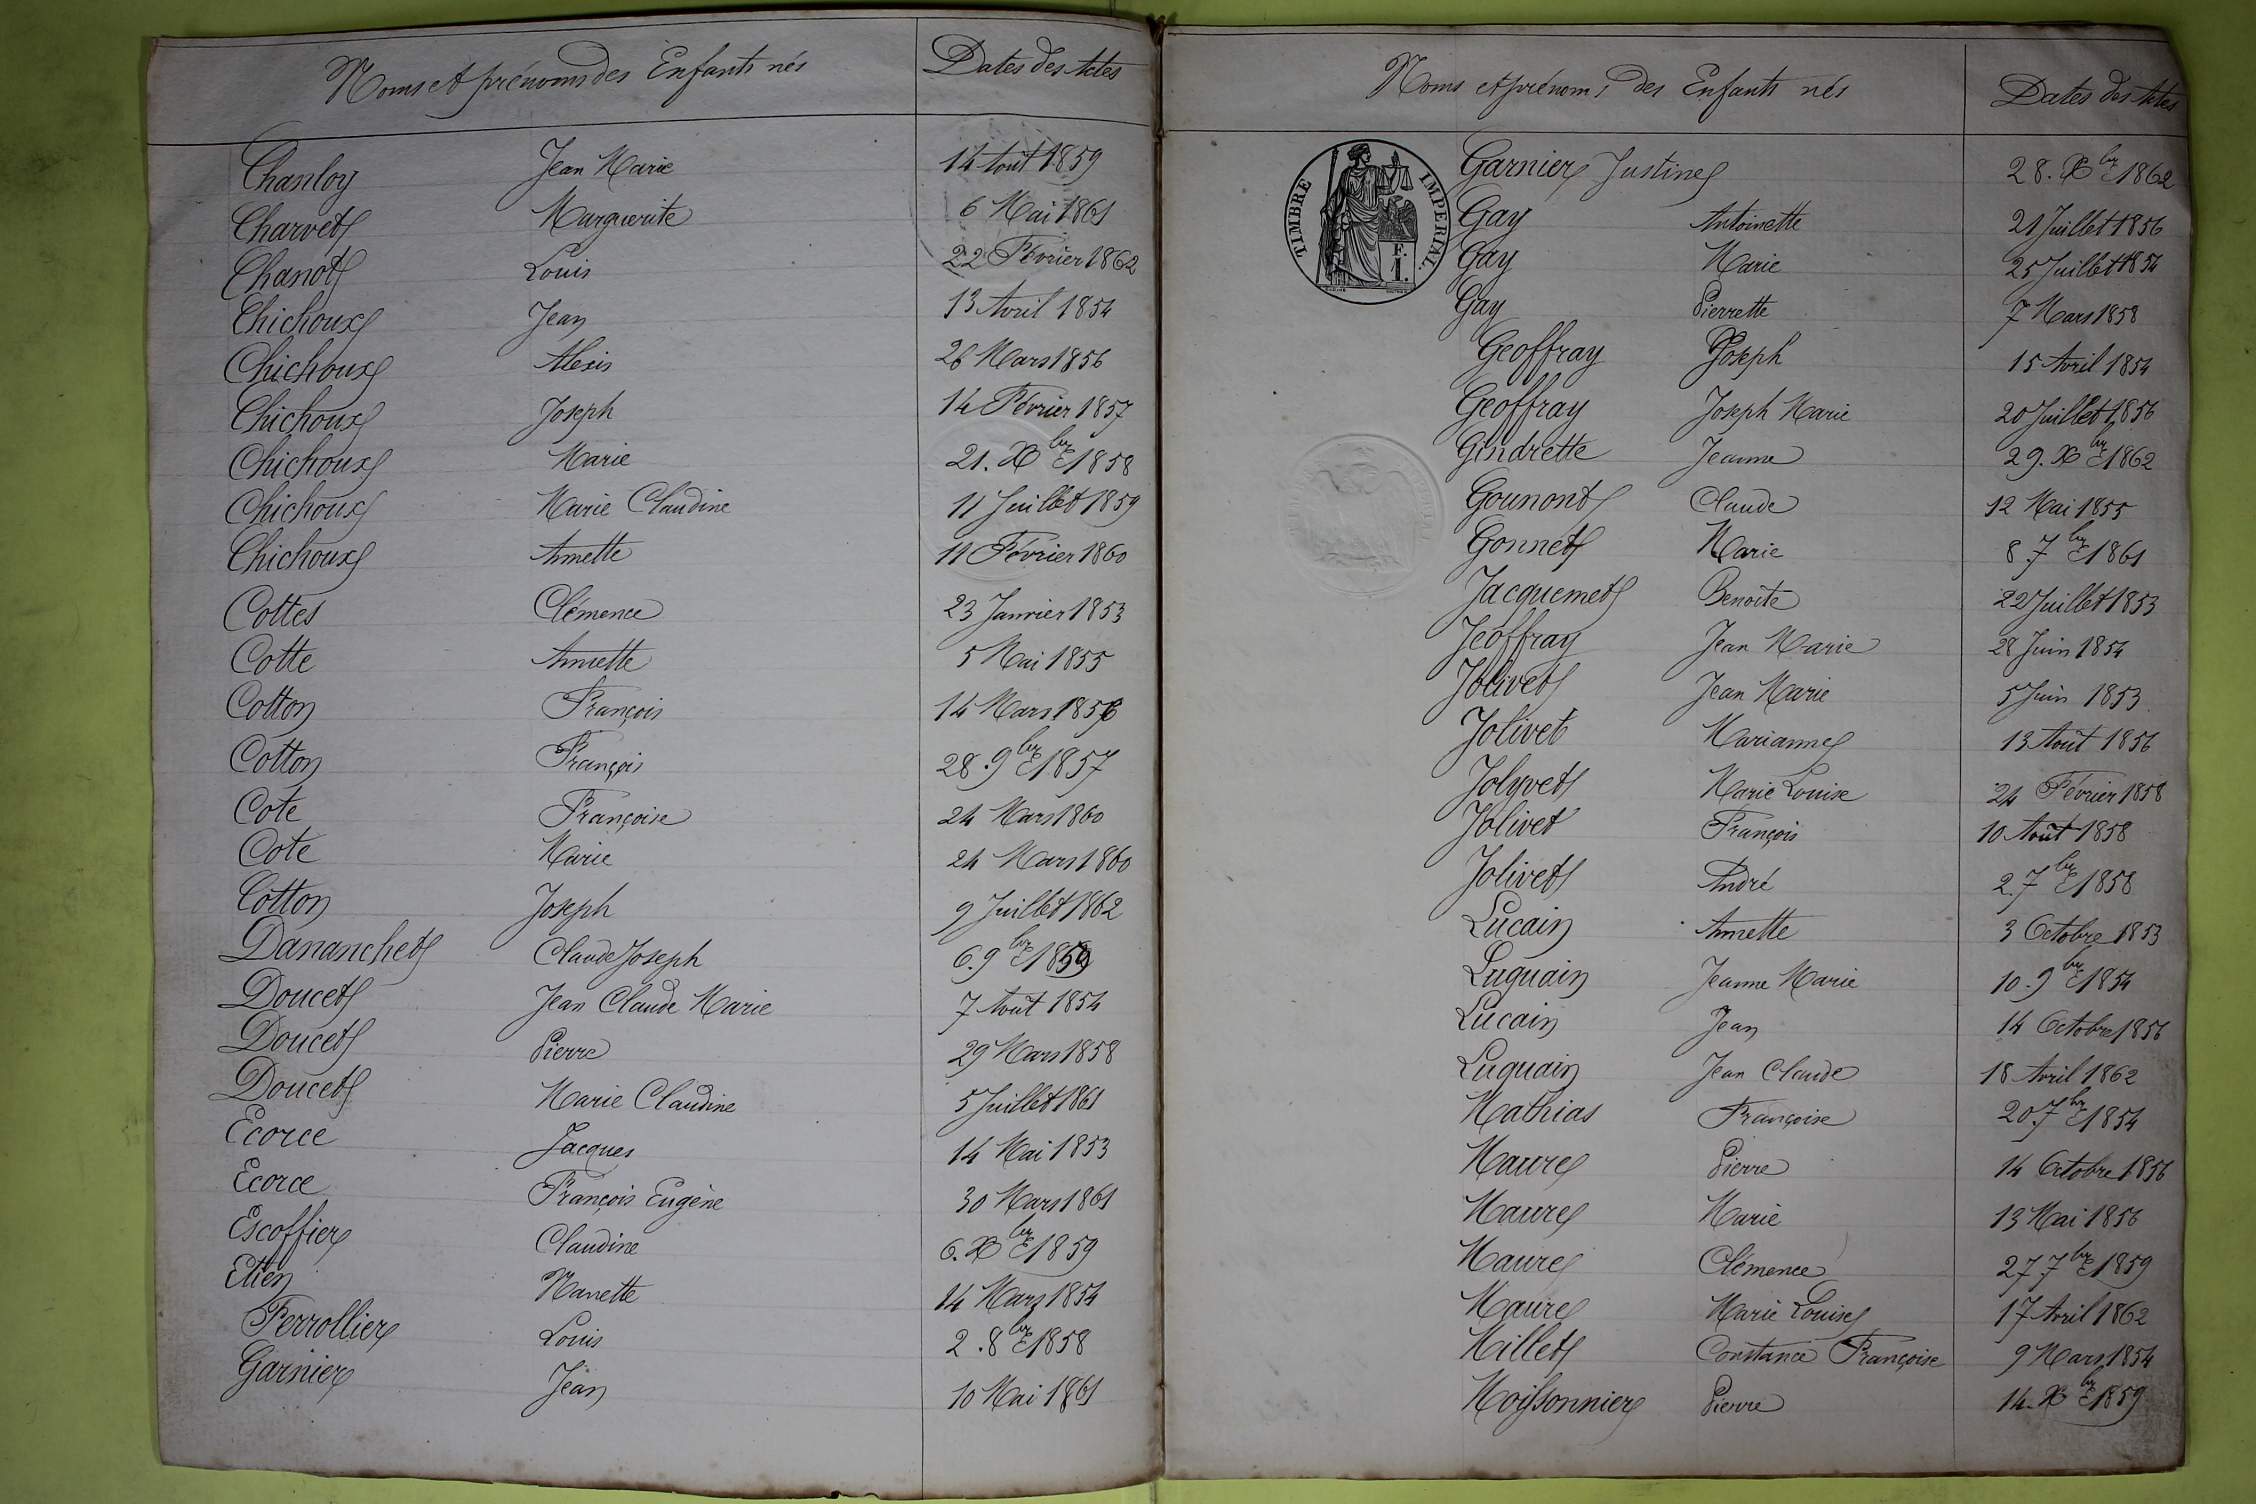 Noms et prénoms des Enfants nés Dates des Actes
Chanloy Jean Marie 14 Août 1859
Charvet Marguerite 6 Mai 1861
Chanot Louis 22 Février 1862
Chichoux Jean 13 Avril 1854
Chichoux Alexis 26 Mars 1856
Chichoux Joseph 14 Février 1857
Chichoux Marie 21. Xbre 1858
Chichoux Marie Claudine 11 Juillet 1859
Chichoux Annette 11 Février 1860
Cottes Clémence 23 Janvier 1853
Cotte Annette 5 Mai 1855
Cotton François 14 Mars 1856
Cotton François 28. 9bre 1857
Cote Françoise 24 Mars 1860
Cote Marie 24 Mars 1860
Cotton Joseph 9 Juillet 1862
Dananchet Claude Joseph 6. 9bre 1859
Doucet Jean Claude Marie 7 Août 1854
Doucet Pierre 29 Mars 1858
Doucet Marie Claudine 5 Juillet 1861
Ecorce Jacques 14 Mai 1853
Ecorce François Eugène 30 Mars 1861
Escoffier Claudine 6. Xbre 1859
Etien Nanette 14 Mars 1854
Ferrollier Louis 2. 8bre 1858
Garnier Jean 10 Mai 1861
Noms et prénoms des Enfants nés Dates des Actes
TIMBRE IMPERIAL.
E. I.
Garnier Justine 28. Xbre 1862
Gay Antoinette 21 Juillet 1856
Gay Marie 25 Juillet 1854
Gay Pierrette 7 Mars 1858
Geoffray Joseph 15 Avril 1854
Geoffray Joseph Marie 20 Juillet 1856
Gindrette Jeanne 29. Xbre 1862
Gounont Claude 12 Mai 1855
Gonnet Marie 8 7bre 1861
Jacquemet Benoîte 22 Juillet 1853
Jeoffray Jean Marie 28 Juin 1854
Jolivet Jean Marie 5 Juin 1853
Jolivet Marianne 13 Août 1856
Jolyvet Marie Louise 24 Février 1858
Jolivet François 10 Août 1858
Jolivet André 2. 7bre 1858
Lucain Annette 3 Octobre 1853
Luquain Jeanne Marie 10. 9bre 1854
Lucain Jean 14 Octobre 1856
Luquain Jean Claude 18 Avril 1862
Mathias Françoise 20. 7bre 1854
Maure Pierre 14 Octobre 1856
Maure Marie 13 Mai 1856
Maure Clémence 27 7bre 1859
Maure Marie Louise 17 Avril 1862
Millet Constance Françoise 9 Mars 1854
Moissonnier Pierre 14. Xbre 1859